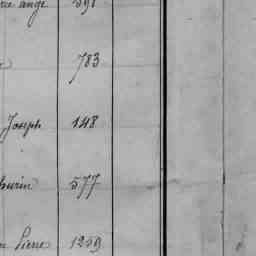 ange 598
783
Joseph 148
577
Pierre 1259